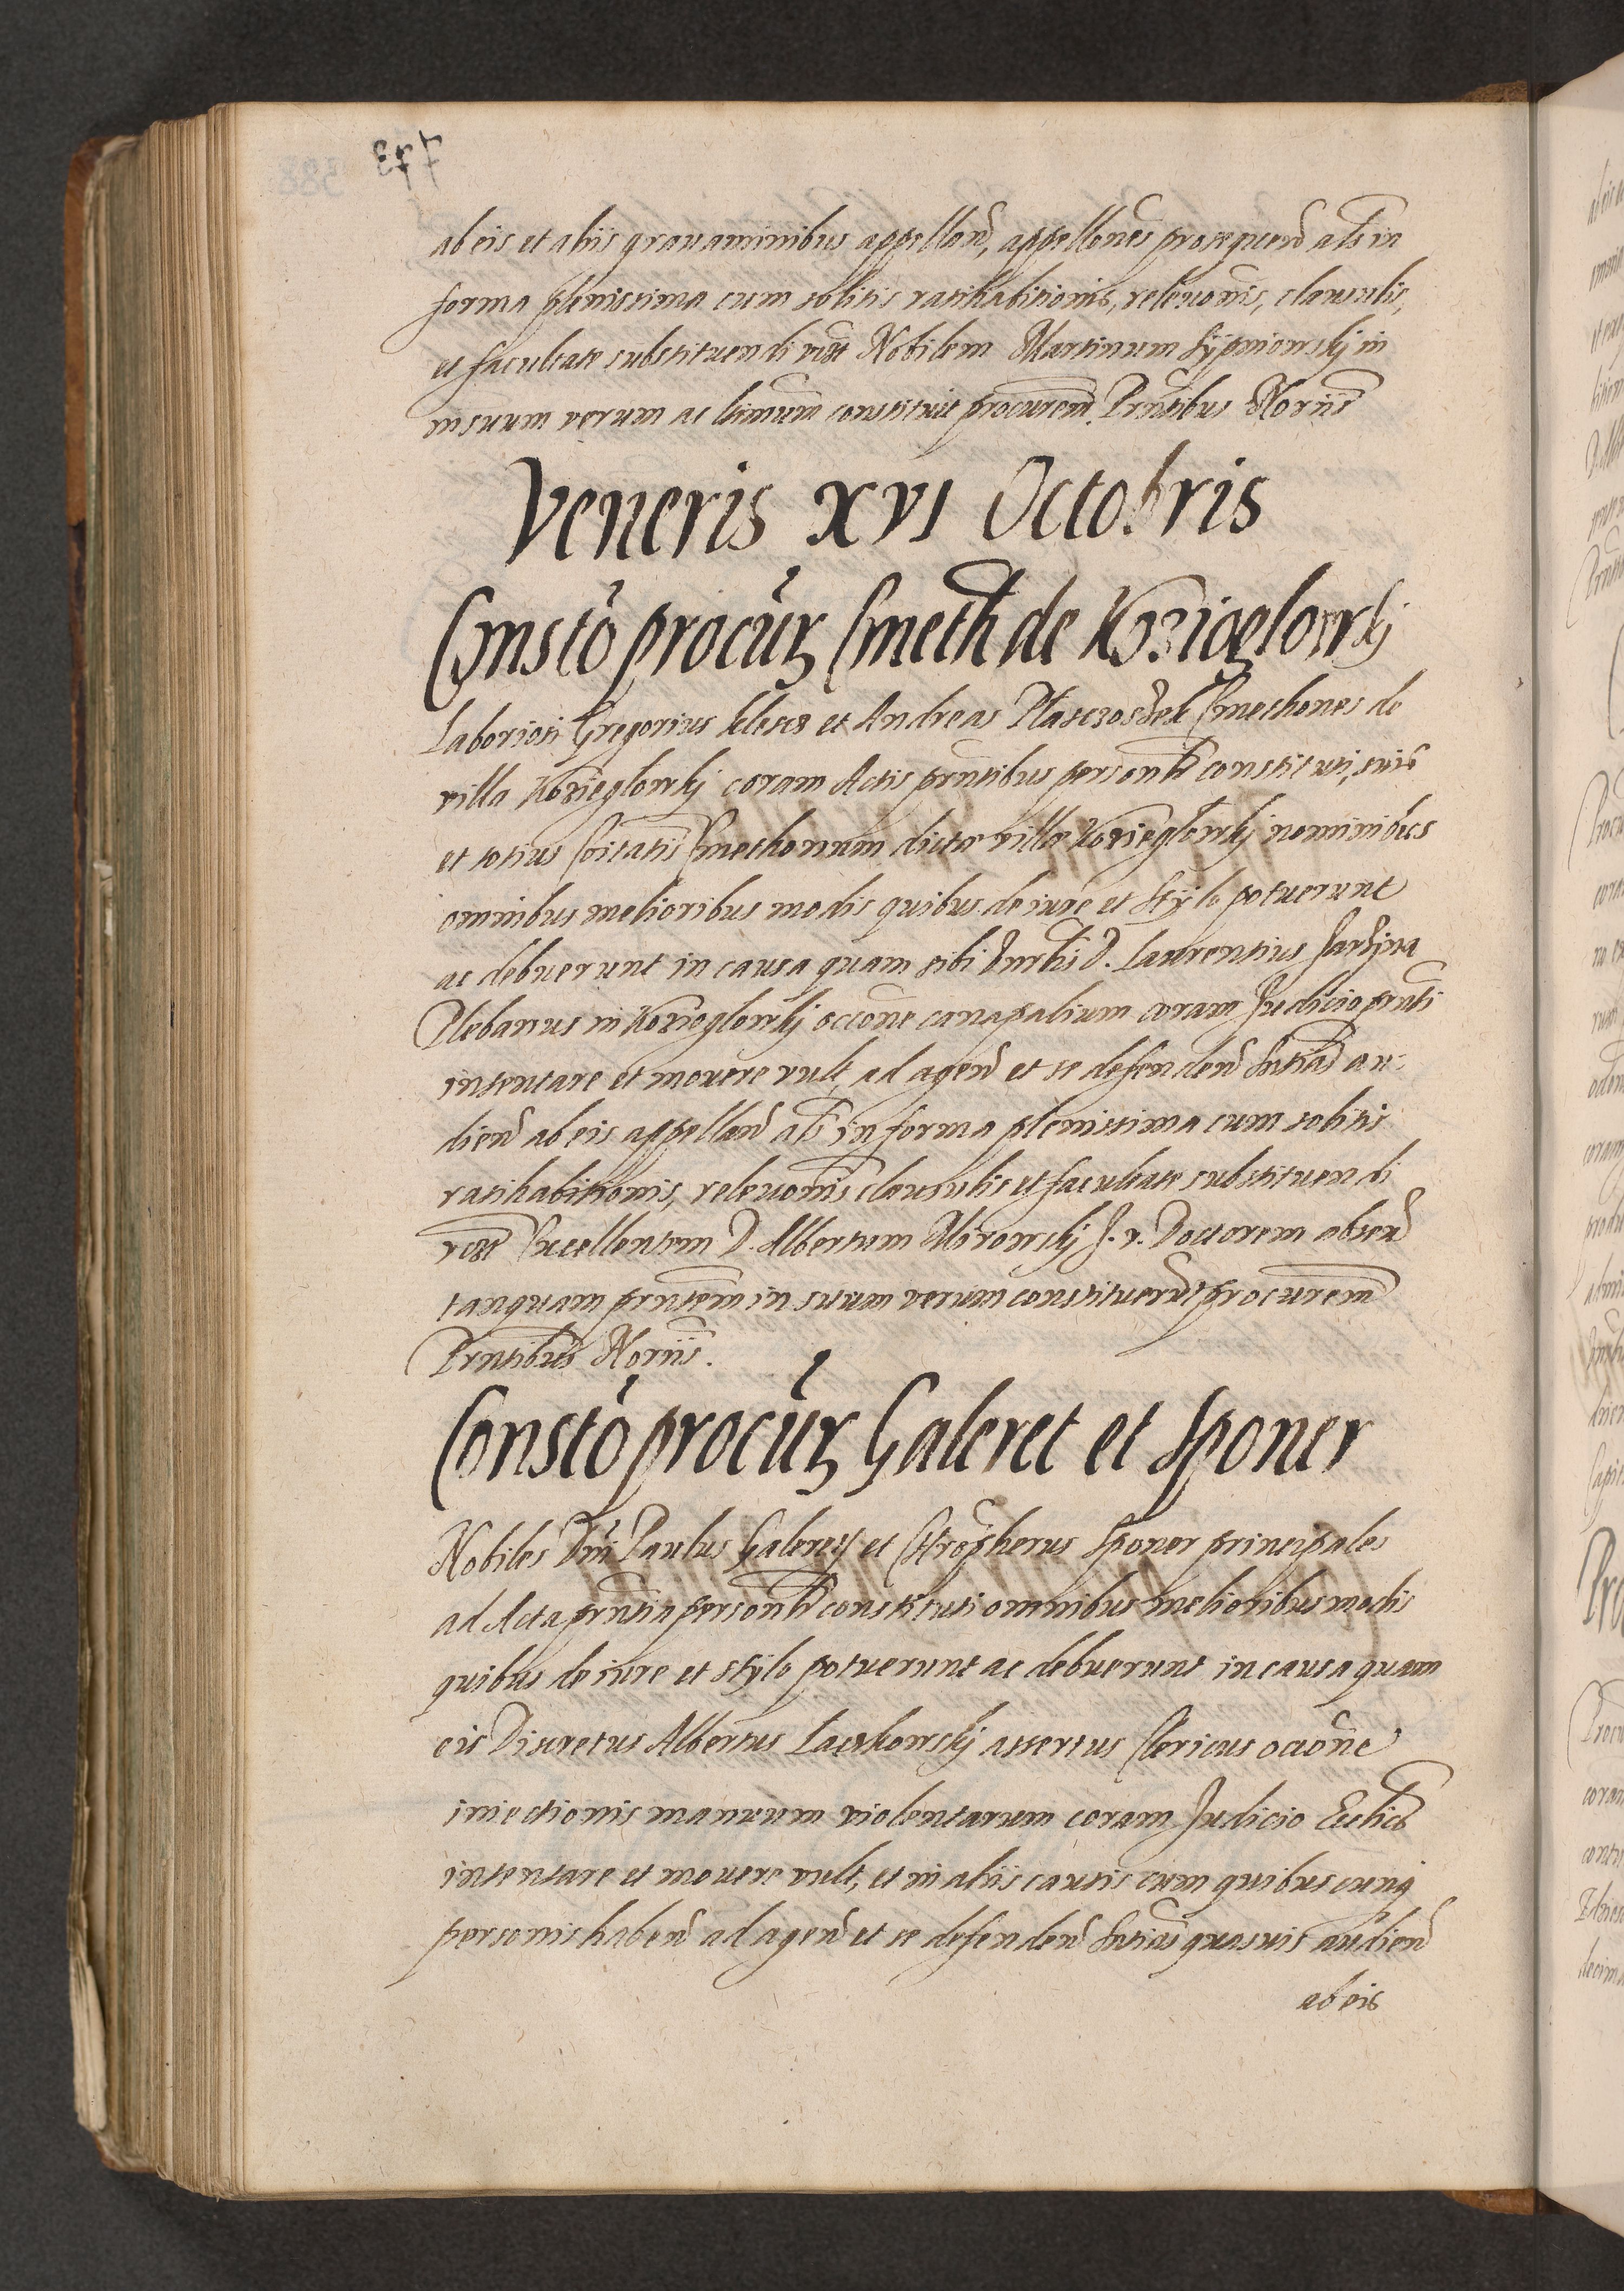 773
ab eis et aliis grauaminibus appellañd, appellones prosequend als in
forma plenissima cum solitis ratihabitionis, releuonis, clausulis,
et facultate substituendi vidzt Nobilem Martinum Sijpniowskj in
in suum verum ac ltimum constituit procurem. Prntibus Noriis
Veneris XVI Octobris
Constõ procur Cmeth de Kozioglowkj
Laboriosi Gregorius et Andreas Cmethones de
villa Kozieglowkj coram Actis prntibus personlr constituti, suis
et totius Coitatis Cmethonum dictæ villæ Kozieglowkj nominibus
omnibus melioribus modis quibus de iure et stÿlo potuerunt
ac debuerunt in causa quam sibi D. Laurentius
Plebanus in Kozioglowkj occone canapalium coram Judicio prnti
intentare et mouere vult, ad agend et se defendend Sntias au-
diend ab eis appelland als in forma plenissima cum solitis
ratihabitionis, releuonis clausulis et facultate substituendi
vidzt Excellentem D. Albertum Mirowskj J. v. Doctorem absend
tanquam prntem in suum verum constituerunt procurem
Prntibus Noriis.
Constõ procur Galeret et Sponer
Nobiles Dni Paulus et Sponer principales
ad Acta prntia personlr constituti omnibus melioribus modis
quibus de iure et stÿlo potuerunt ac debuerunt in causa quam
eis Discretus Albertus assertus Clericus occone
iniectionis manuum violentarum coram Judicio Ecclico
intentare et mouere vult, et in aliis causis cum quibuscunq
personis habend ad agend et se defendend Sntias quasuis audiend
ab eis